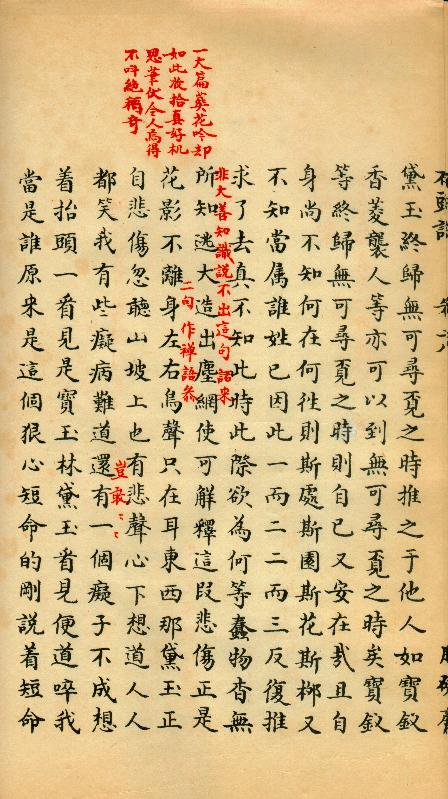 黛玉終歸無可尋覓之時推之于他人如寶釵
香菱襲人等亦可以到無可尋覓之時矣寶釵
等終歸無可尋覓之時則自已又安在哉且自
身尚不知何在何徃則斯處斯園斯花斯柳又
不知當属誰姓已因此一而二二而三反復推
求了去真不知此時此際欲為何等蠢物杳無
非大善知識説不出這句話来
所知逃大造出塵網使可解釋這叚悲傷正是
二句作禪語参
花影不離身左右鳥聲只在耳東西那黛玉正
自悲傷忽聽山坡上也有悲聲心下想道人人
豈敢〻〻
都笑我有些癡病難道還有一個癡子不成想
着抬頭一看見是寶玉林黛玉看見便道啐我
當是誰原来是這個狠心短命的剛説着短命
一大篇葬花吟却
如此收拾真好机
思筆仗令人焉得
不叫絕稱奇